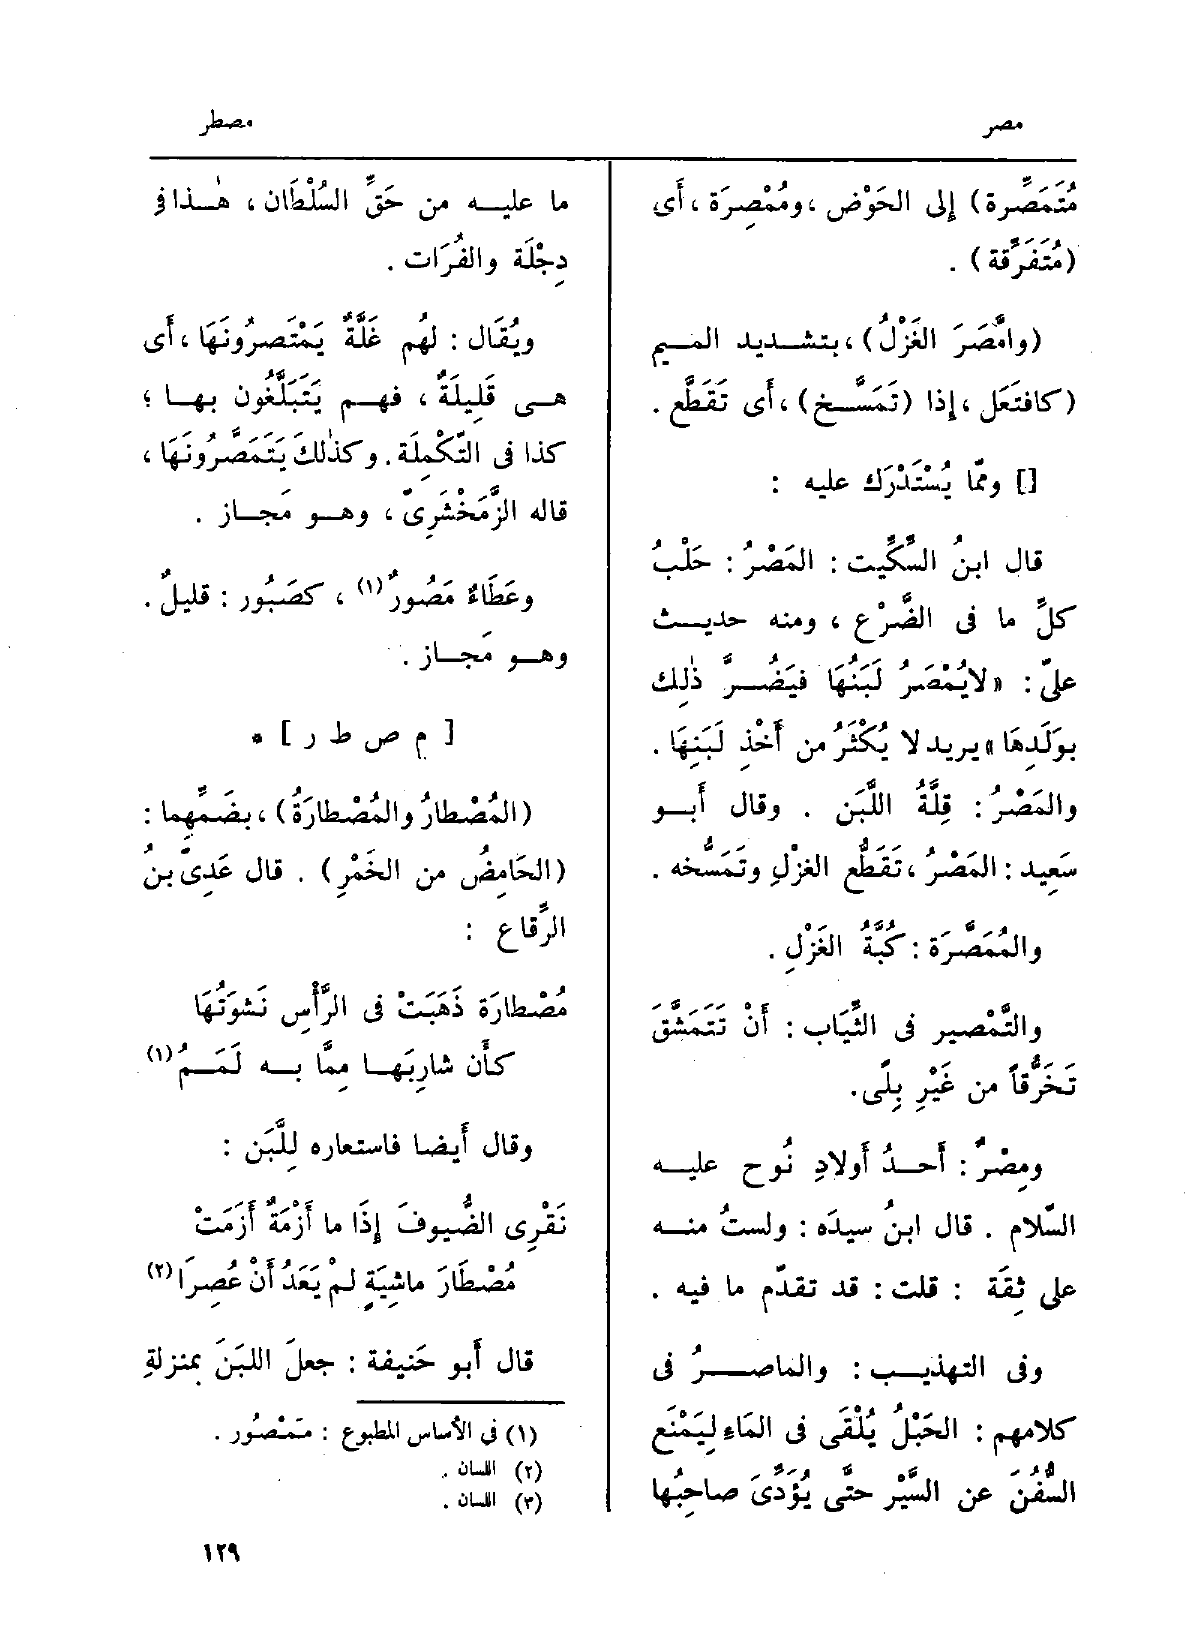 مصر
مصطر
مُتَمَصِّرة) إلى الحَوْض ، ومُمْصِرَة ، أَى
(مُتَفَرِّقة) .
(وامَّصَرَ الغَزْلُ) ، بتشديد الميم
(كافتَعَل ، إذا (تَمَسَّخ) ، أَى تَقَطَّع .
[] وممّا يُسْتَدْرَك عليه :
قال ابنُ السِّكِّيت : المَصْرُ : حَلْبُ
كلِّ ما فى الضَّرْع ، ومنه حديث
علىّ : « لا يُمْصَرُ لَبَنُهَا فيَضُرَّ ذٰلِك
بوَلَدِهَا » يريد لا يُكْثَرُ من أَخْذِ لَبَنِهَا .
والمَصْرُ : قِلَّةُ اللَّبَن . وقال أَبو
سَعِيد : المَصْرُ ، تَقَطُّع الغزْلِ وتَمَسُّخه .
والمُمَصَّرَة : كُبَّةُ الغَزْلِ .
والتَّمْصير فى الثِّيَاب : أَنْ تَتَمَشَّقَ
تَخَرُّقاً من غَيْرِ بِلًى .
ومِصْرٌ : أَحدُ أَولادِ نُوح عليه
السّلام . قال ابنُ سيدَه : ولستُ منه
على ثِقَة : قلت : قد تقدّم ما فيه .
وفى التهذيب : والماصرُ فى
كلامهم : الحَبْلُ يُلْقَى فى المَاءِ لِيَمْنَع
السُّفُنَ عن السَّيْر حتَّى يُؤَدِّىَ صاحِبُها
ما عليه من حَقِّ السُّلْطَان ، هٰذا فى
دِجْلَة والفُرَات .
ويُقَال : لهُم غَلَّةٌ يَمْتَصِرُونَهَا ، أَى
هى قَلِيلَةٌ ، فهم يَتَبَلَّغُون بها ؛
كذا فى التَّكْمِلَة . وكذٰلكَ يَتَمَصَّرُونَهَا ،
قاله الزَّمَخْشَرِىّ ، وهو مَجاز .
وعَطَاءٌ مَصُورٌ (١) ، كصَبُور : قليلٌ .
وهو مَجاز .
[ م ص ط ر ] *
(المُصْطارُ والمُصْطارَةُ) ، بضَمِّهِما :
(الحَامِضُ من الخَمْرِ) . قال عَدِىّ بنُ
الرِّقاع :
مُصْطارَة ذَهَبَتْ فى الرَّأْسِ نَشوَتُهَا
كأَن شارِبَها مِمَّا به لَمَمُ (١)
وقال أَيضا فاستعاره لِلَّبَن :
نَقْرِى الضُّيوفَ إِذَا ما أَزْمَةٌ أَزَمَتْ
مُصْطَارَ ماشِيَةٍ لمْ يَعَدُ أَنْ عُصِرَا (٢)
قال أَبو حَنيفة : جعلَ اللبَنَ بمنزلةِ
(١) فى الأساس المطبوع : مَمْصُور .
(٢) اللسان .
(٣) اللسان .
١٢٩